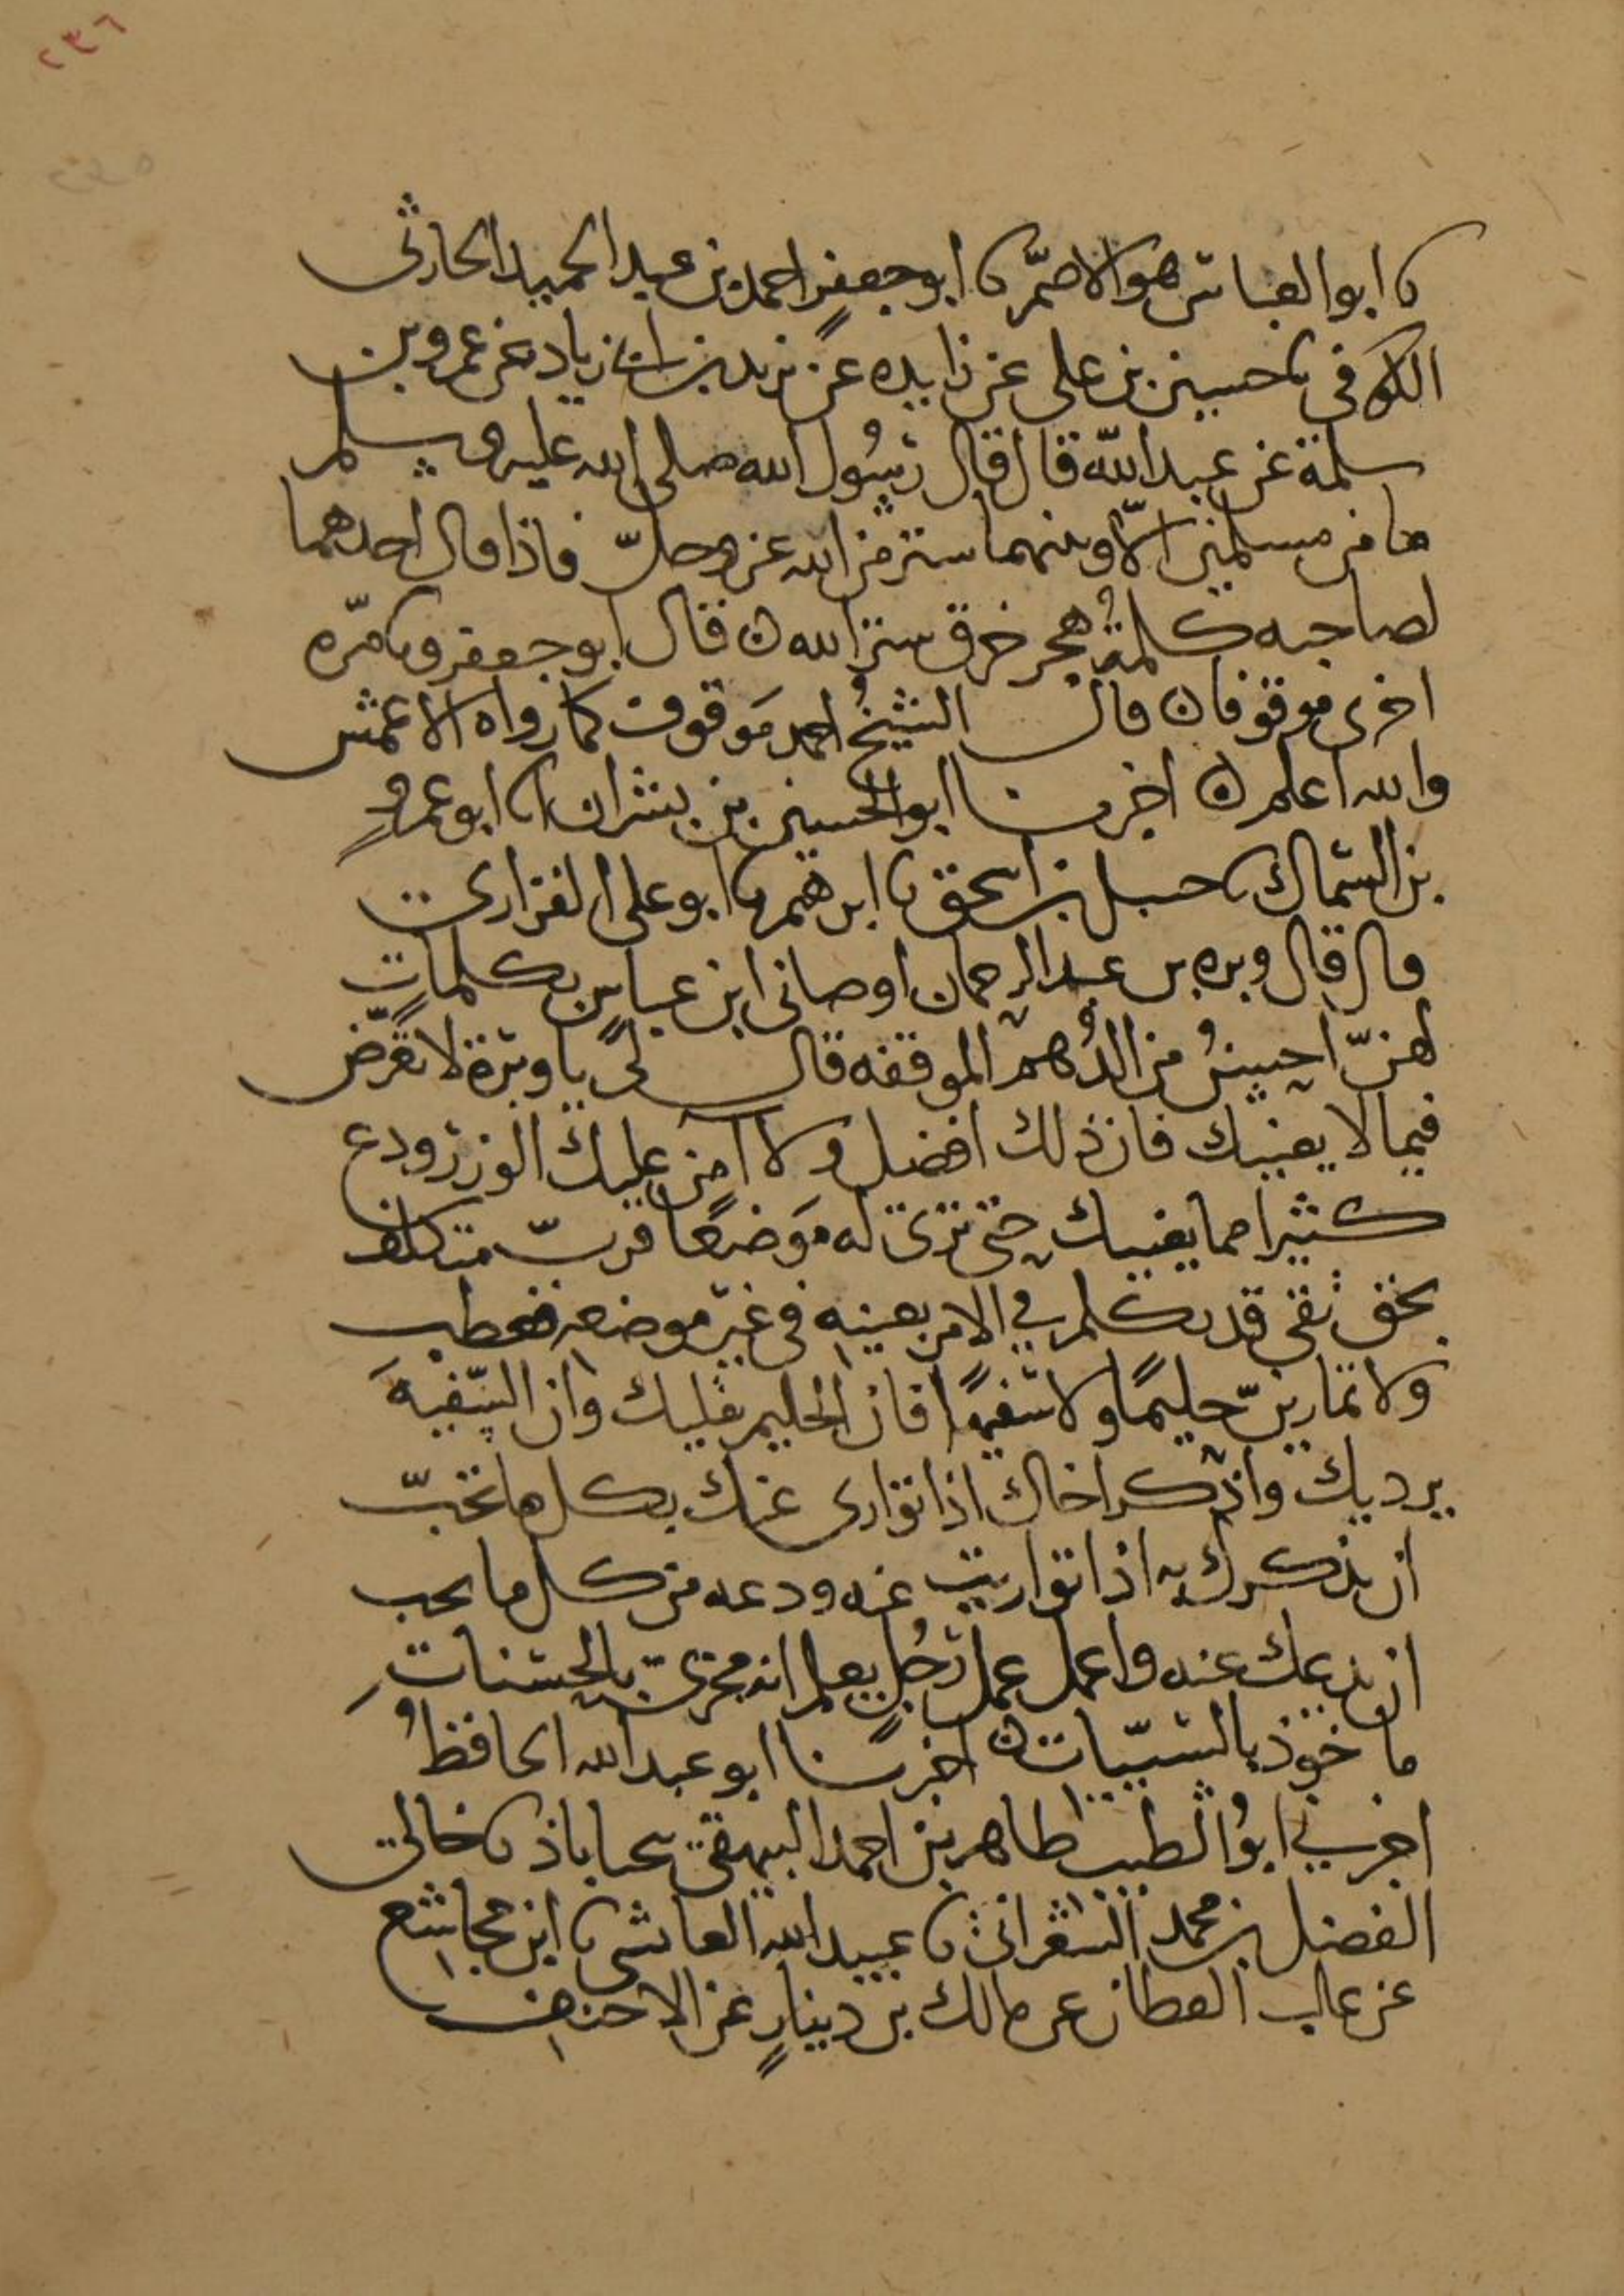 ٢٣٦
نا ابو العباس هو الاصمّ نا ابو جعفرٍ احمد بن عبد الحميد الحارثى
الكوفى نا حسين بن على عن زايده عن يزيد بن ابى زياد عن عمرو بن
سلمة عن عبد الله قال قال رسُول الله صلى الله عليه وسلم
ما من مسلمين الّا وبينهما ستر من الله عز وجلّ فاذا قال احدهما
لصاحبه كلمةُ هجر خرق ستر الله ه قال ابو جعفر ونا مرّه
اخرى موقوفا ه قال الشيخُ احمد مَوقوف كما رواه الاعمش
والله اعلم ه اخبرنا ابو الحسين بن بشران انا ابو عمروٍ
بن السماك نا حنبل بن اسحق نا ابرهيم نا ابو على الفزارى
قال قال وبره بن عبد الرحمان اوصانى ابن عباسٍ بكلماتٍ
لهنّ احسنُ من الدُهم الموقفه قال لى يا وبرة لا تعرّض
فيما لا يعنيك فان ذلك افضل ولا آمن عليك الوزر ودع
كثيرا مما يعنيك حتى ترى له مَوضعًا فربّ متكلف
بحق تقى قد تكلم في الامر بعينه فى غير موضعه فعطب
ولا تمارينّ حليمًا ولا سفيهًا فان الحليم يقليك وان السّفيهَ
يرديك واذكر اخاك اذا توارى عنك بكل ما تحبّ
ان يذكرك به اذا تواريت عنه ودعه من كل ما تحب
ان يدعك عنه واعمل عمل رجُلٍ يعلم انه مجزى بالحسناتِ
ماخوذ بالسيّيات ه اخبرنا ابو عبد الله الحافظُ
اخبرني ابوُ الطيب طاهر بن احمد البيهقى نا خالى
الفضل بن محمد الشعرانى نا عبيد الله العايشى نا ابن مجاشع
عن غالب القطان عن مالك بن دينارٍ عن الاحنف